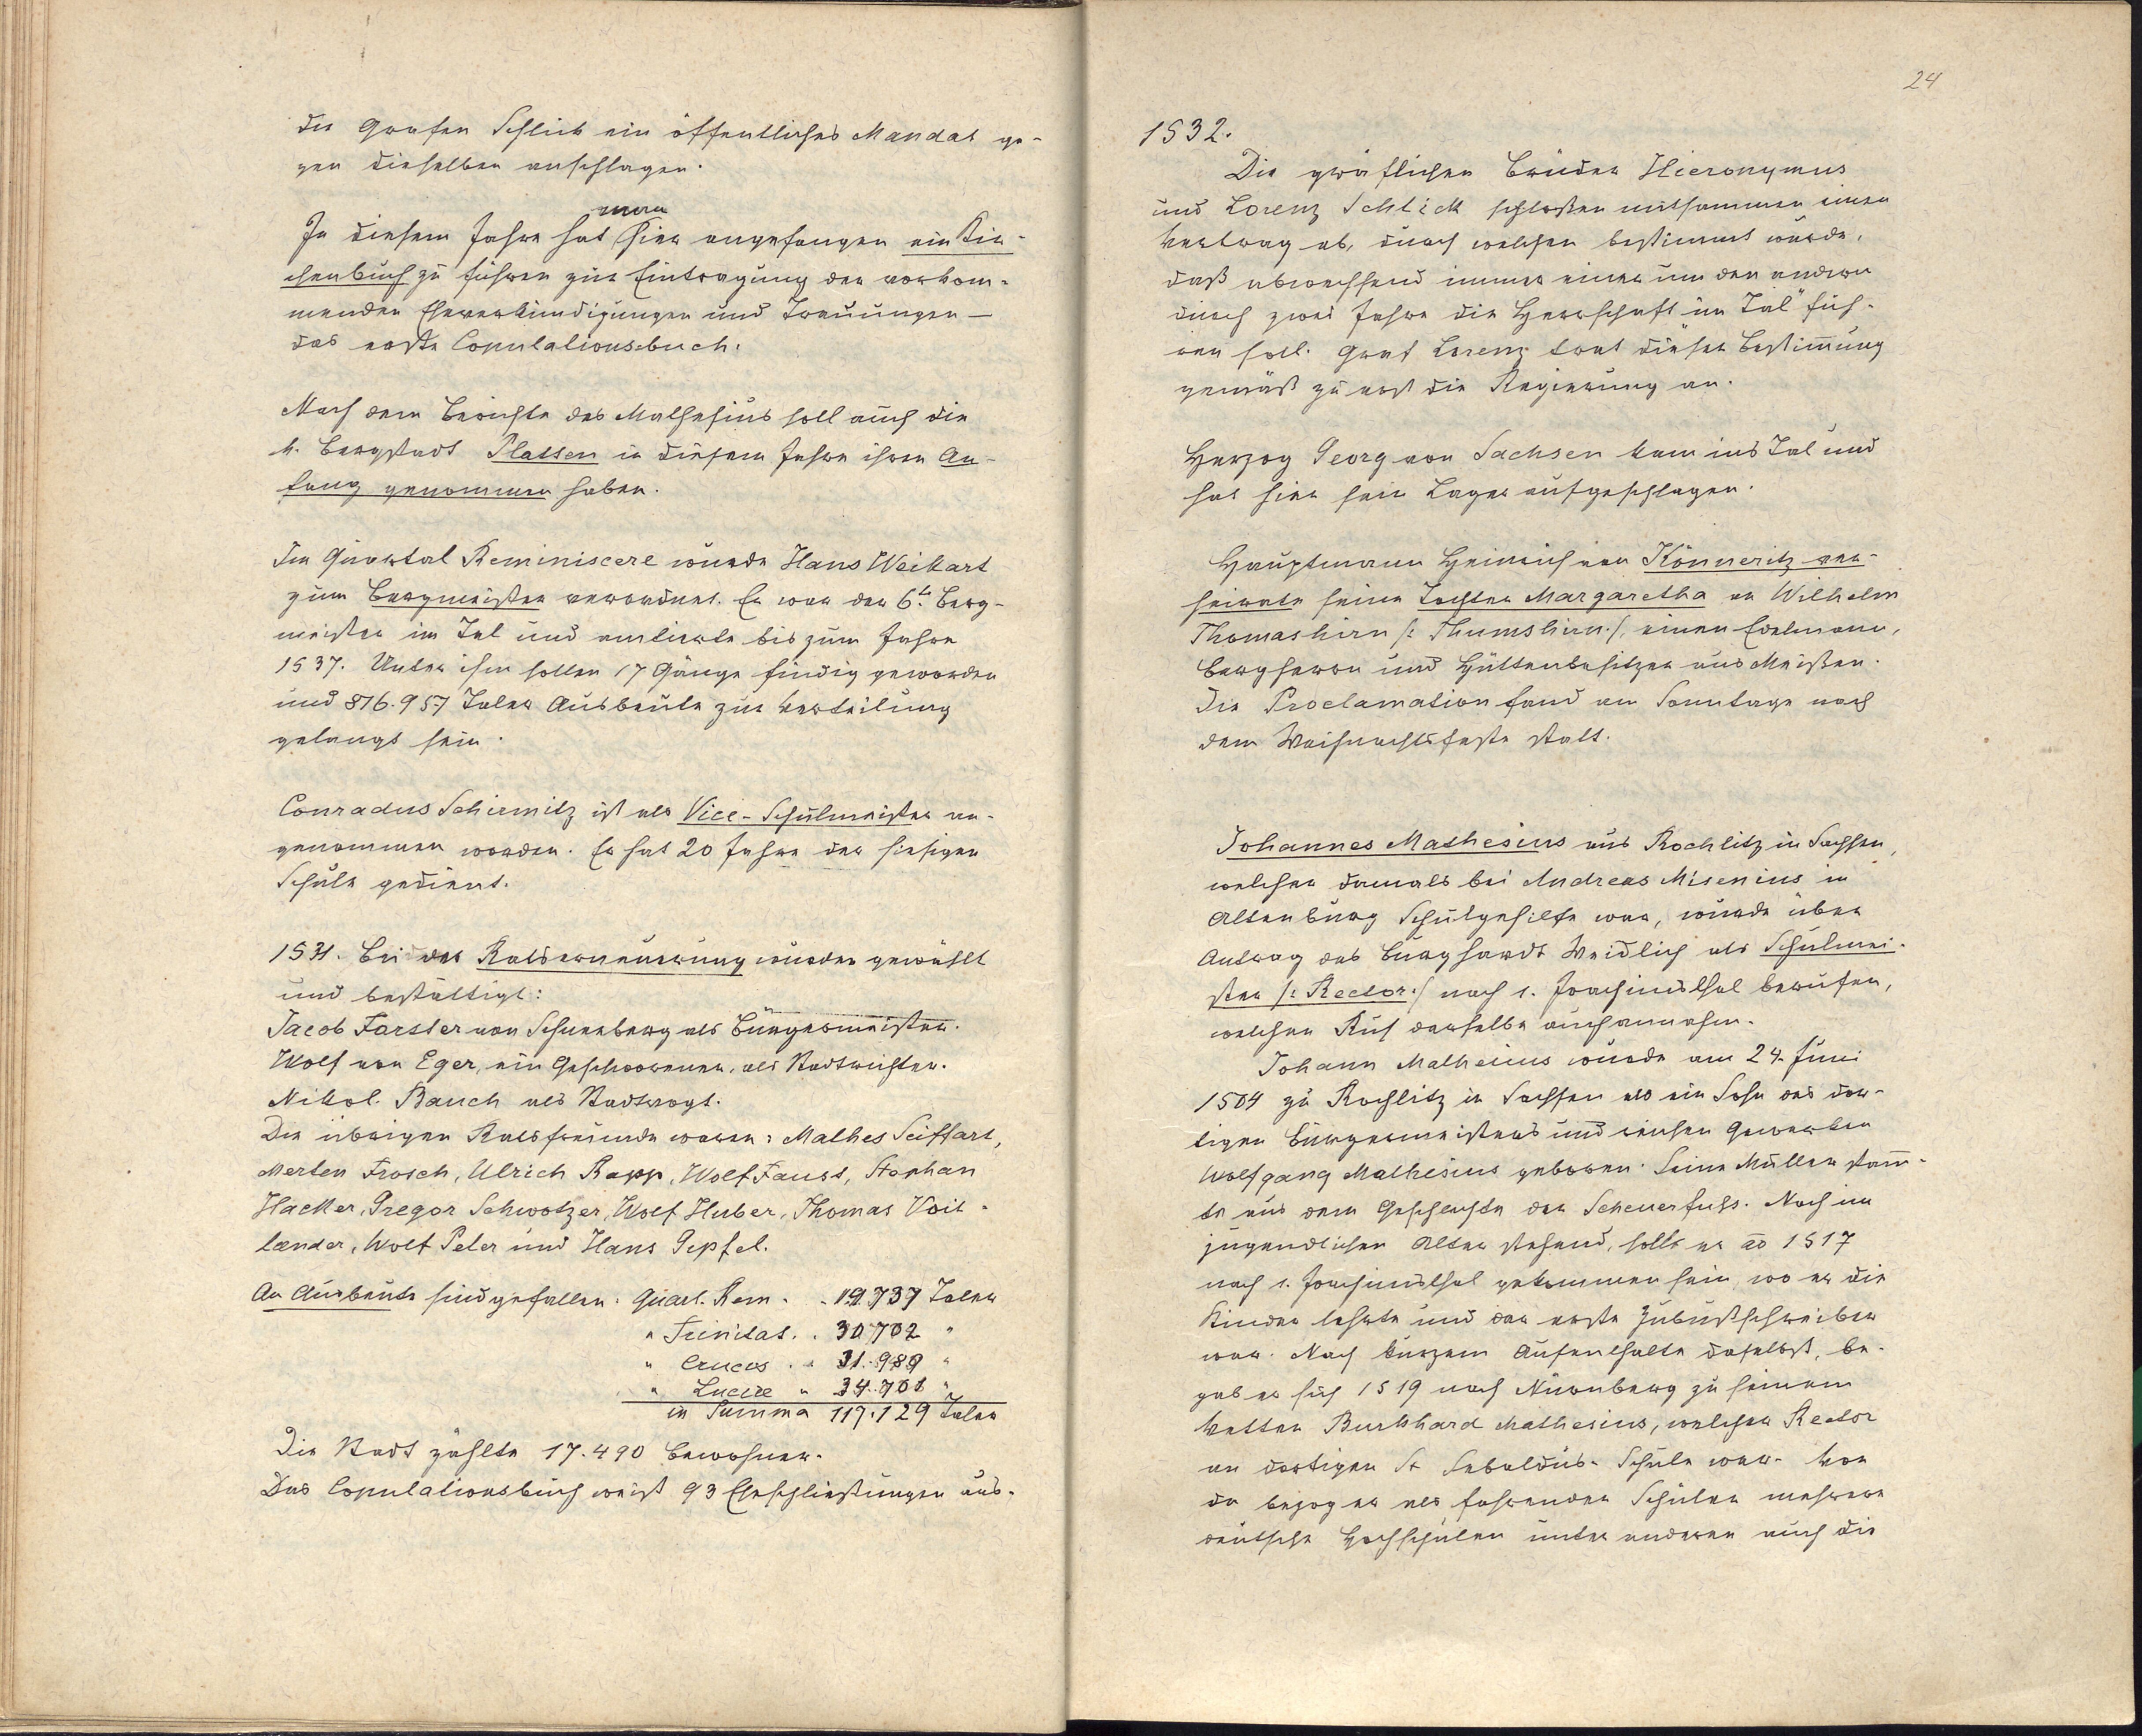 die Grafen Schlick ein öffentliches Mandat ge-
gen dieselben anschlagen.
man
In diesem Jahre hat hier angefangen ein Kir-
chenbuch zu führen zur Eintragung der vorkom-
menden Eheverkündigungen und Trauungen —
das erste Copulationsbuch.
Nach dem Berichte des Mathesius soll auch die
k. Bergstadt Platten in diesem Jahre ihren An-
fang genommen haben.
Im Quartal Reminiscere wurde Hans Weikart
zum Bergmeister verordnet. Er war der 6te Berg-
meister im Tal und amtierte bis zum Jahre
1537. Unter ihm sollen 17 Gänge findig geworden
und 876.957 Taler Ausbeute zur Verteilung
gelangt sein.
Conradus Schirnitz ist als Vice-Schulmeister an-
genommen worden. Er hat 20 Jahre der hiesigen
Schule gedient.
1531. Bei der Ratserneuerung wurden gewählt
und bestättigt:
Jacob Forster von Schneeberg als Bürgermeister.
Wolf von Eger, ein Geschworener, als Stadtrichter.
Nikol. Bauch als Stadtvogt.
Die übrigen Ratsfreunde waren: Mathes Seiffart,
Merten Frosch, Ulrich Rapp, Wolf Faust, Stephan
Hacker, Gregor Schwotzer, Wolf Huber, Thomas Voit-
länder, Wolf Peter und Hans Gipfel.
An Ausbeute sind gefallen: Quart. Rem. . 19.737 Taler
" Trinitat. . 30.702 "
" Crucis . . 31.989 "
" Luciæ " 34.701 "
in Summa 117.129 Taler
Die Stadt zählte 17.490 Bewohner.
Das Copulationsbuch weist 93 Eheschließungen aus.
24
1532.
Die gräflichen Brüder Hieronymus
und Lorenz Schlick schloßen mitsammen einen
Vertrag ab, durch welchen bestimmt wurde,
daß abwechselnd immer einer um den andern
durch zwei Jahre die Herrschaft im Tal füh-
ren soll. Graf Lorenz trat dieser Bestimmung
gemäß zu erst die Regierung an.
Herzog Georg von Sachsen kam ins Tal und
hat hier sein Lager aufgeschlagen.
Hauptmann Heinrich von Könneritz ver-
heirate seine Tochter Margaretha an Wilhelm
Thomashirn /: Thumshirn :/, einen Edelmann,
Bergherrn und Hüttenbesitzer aus Meißen.
Die Proclamation fand am Sonntage nach
dem Weihnachtsfeste statt.
Johannes Mathesius aus Rochlitz in Sachsen,
welcher damals bei Andreas Misenius in
Altenburg Schulgehilfe war, wurde über
Antrag des Burghardt Weidlich als Schulmei-
ster /: Rector :/ nach s. Joachimsthal berufen,
welchen Ruf derselbe auch annahm.
Johann Mathesius wurde am 24. Juni
1504 zu Rochlitz in Sachsen als ein Sohn des dor-
tigen Bürgermeisters und reichen Gewerken
Wolfgang Mathesius geboren. Seine Mutter stam̄-
te aus dem Geschlechte der Scheuerfuss. Noch im
jugendlichen Alter stehend, sollt er ao 1517
nach s. Joachimsthal gekommen sein, wo er die
Kinder lehrte und der erste Zubußschreiber
war. Nach kurzem Aufenthalte daselbst, be-
gab er sich 1519 nach Nürnberg zu seinem
Vetter Burkhard Mathesius, welcher Rector
an dortigen St Sebaldus-Schule war. Von
da bezog er als fahrender Schüler mehrere
deutsche Hochschulen unter anderen auch die